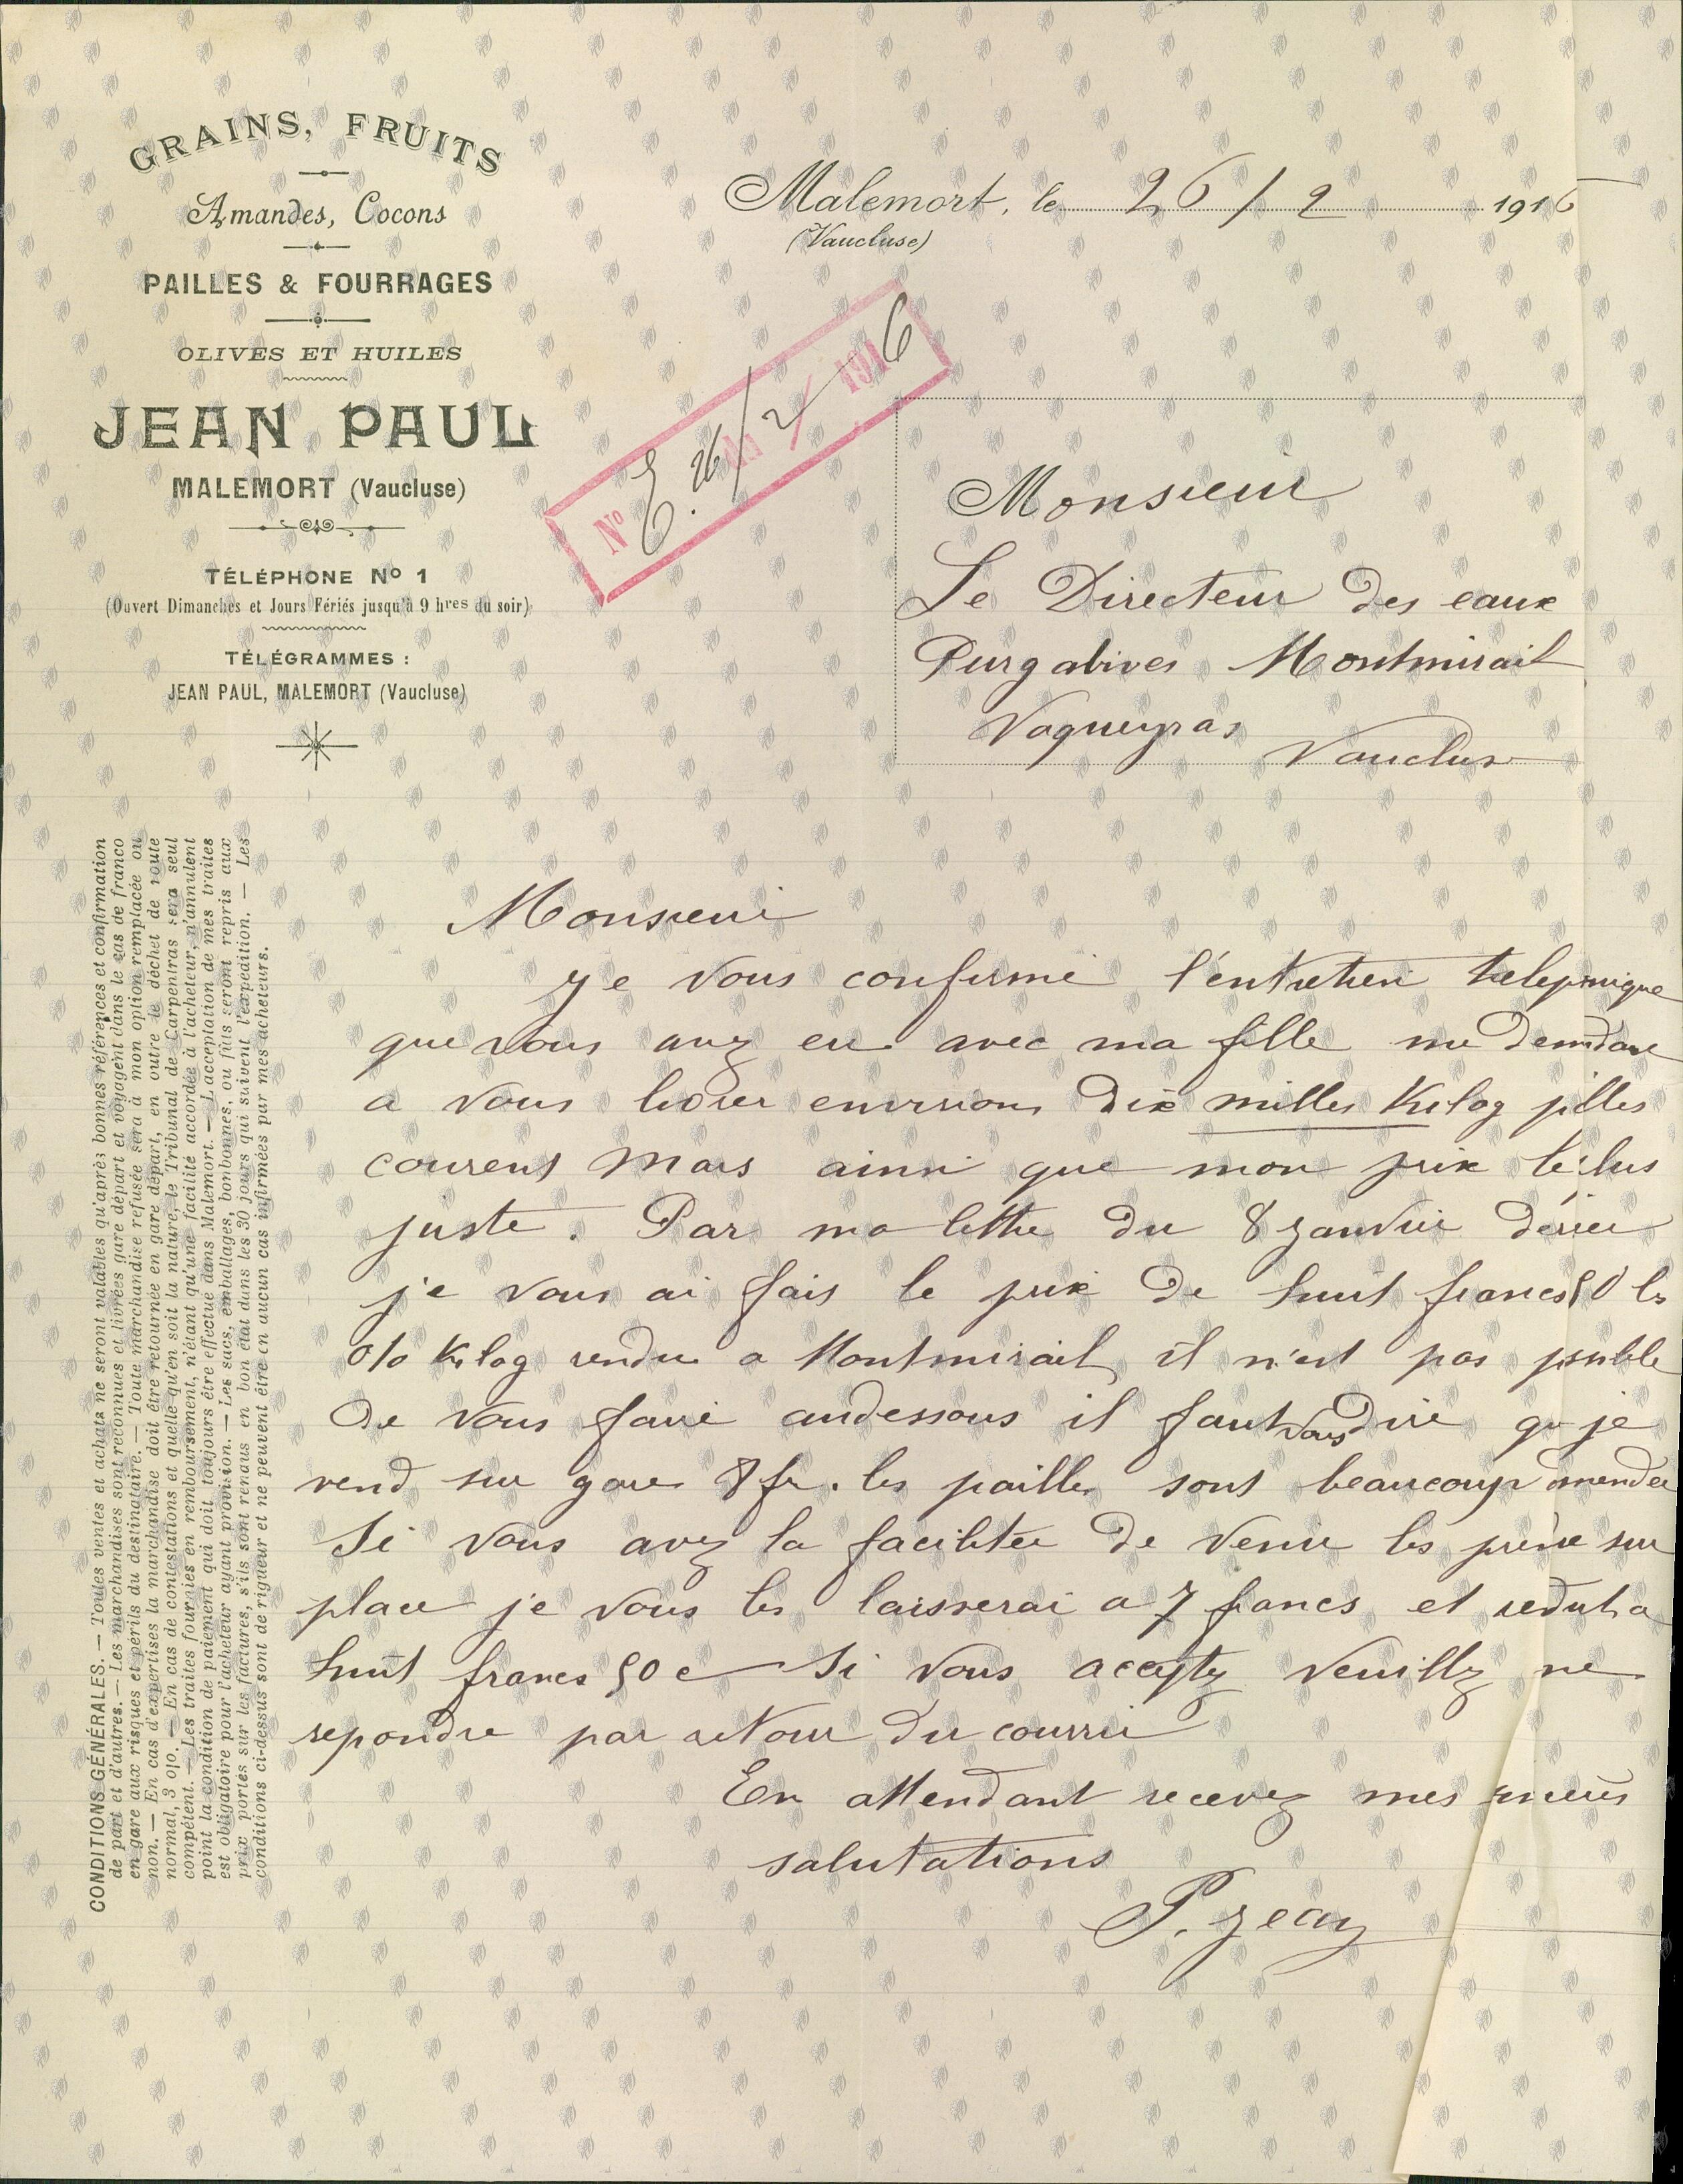 GRAINS, FRUITS
Amandes, Cocons
PAILLES & FOURRAGES
OLIVES ET HUILES
JEAN PAUL
MALEMORT (Vaucluse)
TÉLÉPHONE Nº 1
(Ouvert Dimanches et Jours Fériés jusqu'à 9 hres du soir)
TÉLÉGRAMMES :
JEAN PAUL, MALEMORT (Vaucluse)
Malemort, le 26/2 1916
(Vaucluse)
Nº E. 26/2 1916
Monsieur
Le Directeur des eaux
Purgatives Montmirail
Vaqueyras Vaucluse
CONDITIONS GÉNÉRALES. — Toutes ventes et achats ne seront valables qu'après bonnes références et confirmation
de part et d'autres. — Les marchandises sont reconnues et livrées gare départ et voyagent dans le cas de franco
en gare aux risques et périls du destinataire. — Toute marchandise refusée sera à mon option remplacée ou
non. — En cas d'expertises la marchandise doit être retournée en gare départ, en outre le déchet de route
normal, 3 o/o. — En cas de contestations et quelle qu'en soit la nature, le Tribunal de Carpentras sera seul
compétent. — Les traites fournies en remboursement, n'étant qu'une facilité accordée à l'acheteur, n'annulent
point la condition de paiement qui doit toujours être effectué dans Malemort. — L'acceptation de mes traites
est obligatoire pour l'acheteur ayant provision. — Les sacs, emballages, bonbonnes, ou fûts seront repris aux
prix portés sur les factures, s'ils sont rendus en bon état dans les 30 jours qui suivent l'expédition. — Les
conditions ci-dessus sont de rigueur et ne peuvent être en aucun cas infirmées par mes acheteurs.
Monsieur
Je vous confirme l'entretien
que vous avez eu avec ma fille me
a vous livrer environs dix milles Kilog
courent Mars ainsi que mon prix
juste. Par ma lettre du 8 Janvier
je vous ai fais le prix de huit francs 50 les
o/o Kilog rendu a Montmirail il n'est pas
de vous faire audessous il faut vous dire que je
vend sur gare 8 fr. les pailles sont beaucoup
Si vous avez la facilitée de venir les sur
place je vous les laisserai a 7 francs et a
huit francs 50 c Si vous acceptez veuillez me
repondre par retour du courrier
En attendant recevez mes
salutations
P. Jean